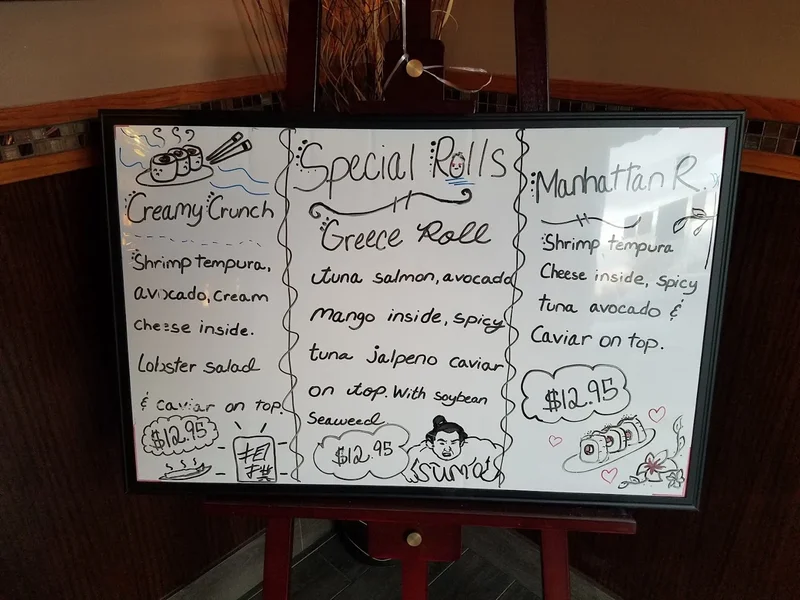 Creamy Crunch
Shrimp tempura,
avocado, Cream
cheese inside.
Lobster salad
& caviar on top.
$12.95
Special Rolls
Greece Roll
tuna salmon, avocado
mango inside, spicy
tuna jalpeno caviar
on top. With soybean
Seaweed
$12.95
Sumo's
Manhattan R.
Shrimp tempura
Cheese inside, spicy
tuna avocado &
Caviar on top.
$12.95